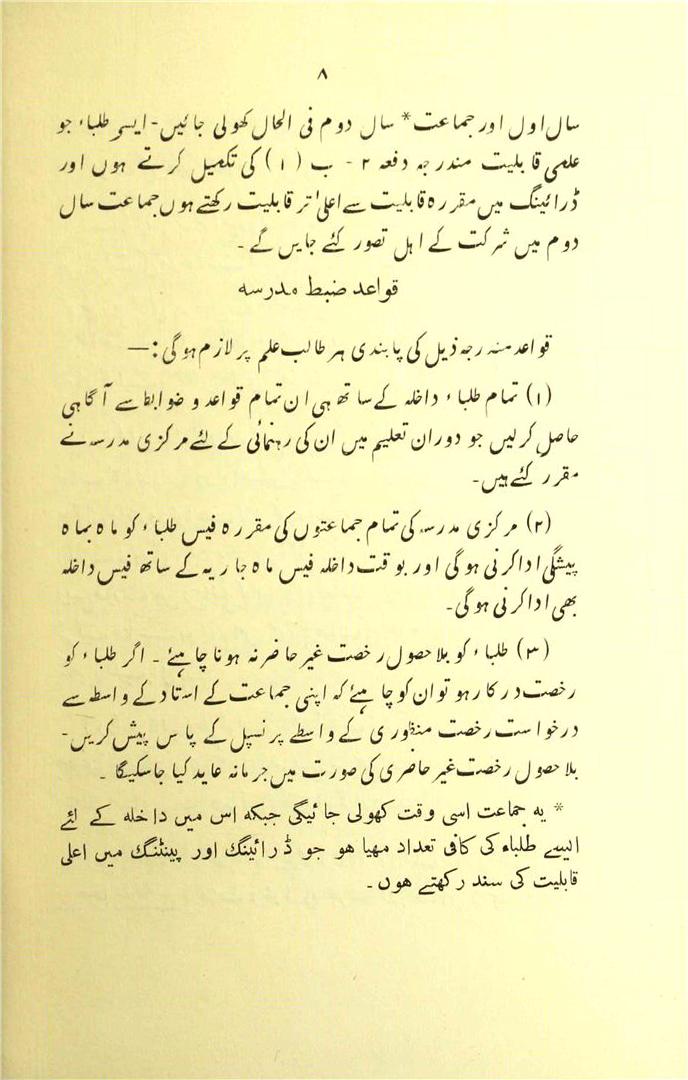 ۸
سال اول اور جماعت* سال دوم فی الحال کھولی جائیں - ایسے طلباء جو
علمی قابلیت مندرجہ دفعہ ۲ - ب (۱) کی تکمیل کرتے ہوں اور
ڈرائینگ میں مقررہ قابلیت سے اعلیٰ تر قابلیت رکھتے ہوں جماعت سال
دوم میں شرکت کے اہل تصور کئے جایں گے -
قواعد ضبط مدرسہ
قواعد مندرجہ ذیل کی پابندی ہر طالب علم پر لازم ہوگی :—
(۱) تمام طلباء داخلہ کے ساتھ ہی ان تمام قواعد و ضوابط سے آگاہی
حاصل کرلیں جو دوران تعلیم میں ان کی رہنمائی کے لئے مرکزی مدرسہ نے
مقرر کئے ہیں -
(۲) مرکزی مدرسہ کی تمام جماعتوں کی مقررہ فیس طلباء کو ماہ بماہ
پیشگی ادا کرنی ہوگی اور بوقت داخلہ فیس ماہ جاریہ کے ساتھ فیس داخلہ
بھی ادا کرنی ہوگی -
(۳) طلباء کو بلا حصول رخصت غیر حاضر نہ ہونا چاہئے - اگر طلباء کو
رخصت درکار ہو تو ان کو چاہئے کہ اپنی جماعت کے استاد کے واسطے سے
درخواست رخصت منظوری کے واسطے پرنسپل کے پاس پیش کریں -
بلا حصول رخصت غیر حاضری کی صورت میں جرمانہ عاید کیا جاسکیگا -
* یہ جماعت اسی وقت کھولی جائیگی جبکہ اس میں داخلہ کے لئے
ایسے طلباء کی کافی تعداد مہیا ہو جو ڈرائینگ اور پینٹنگ میں اعلی
قابلیت کی سند رکھتے ہوں -